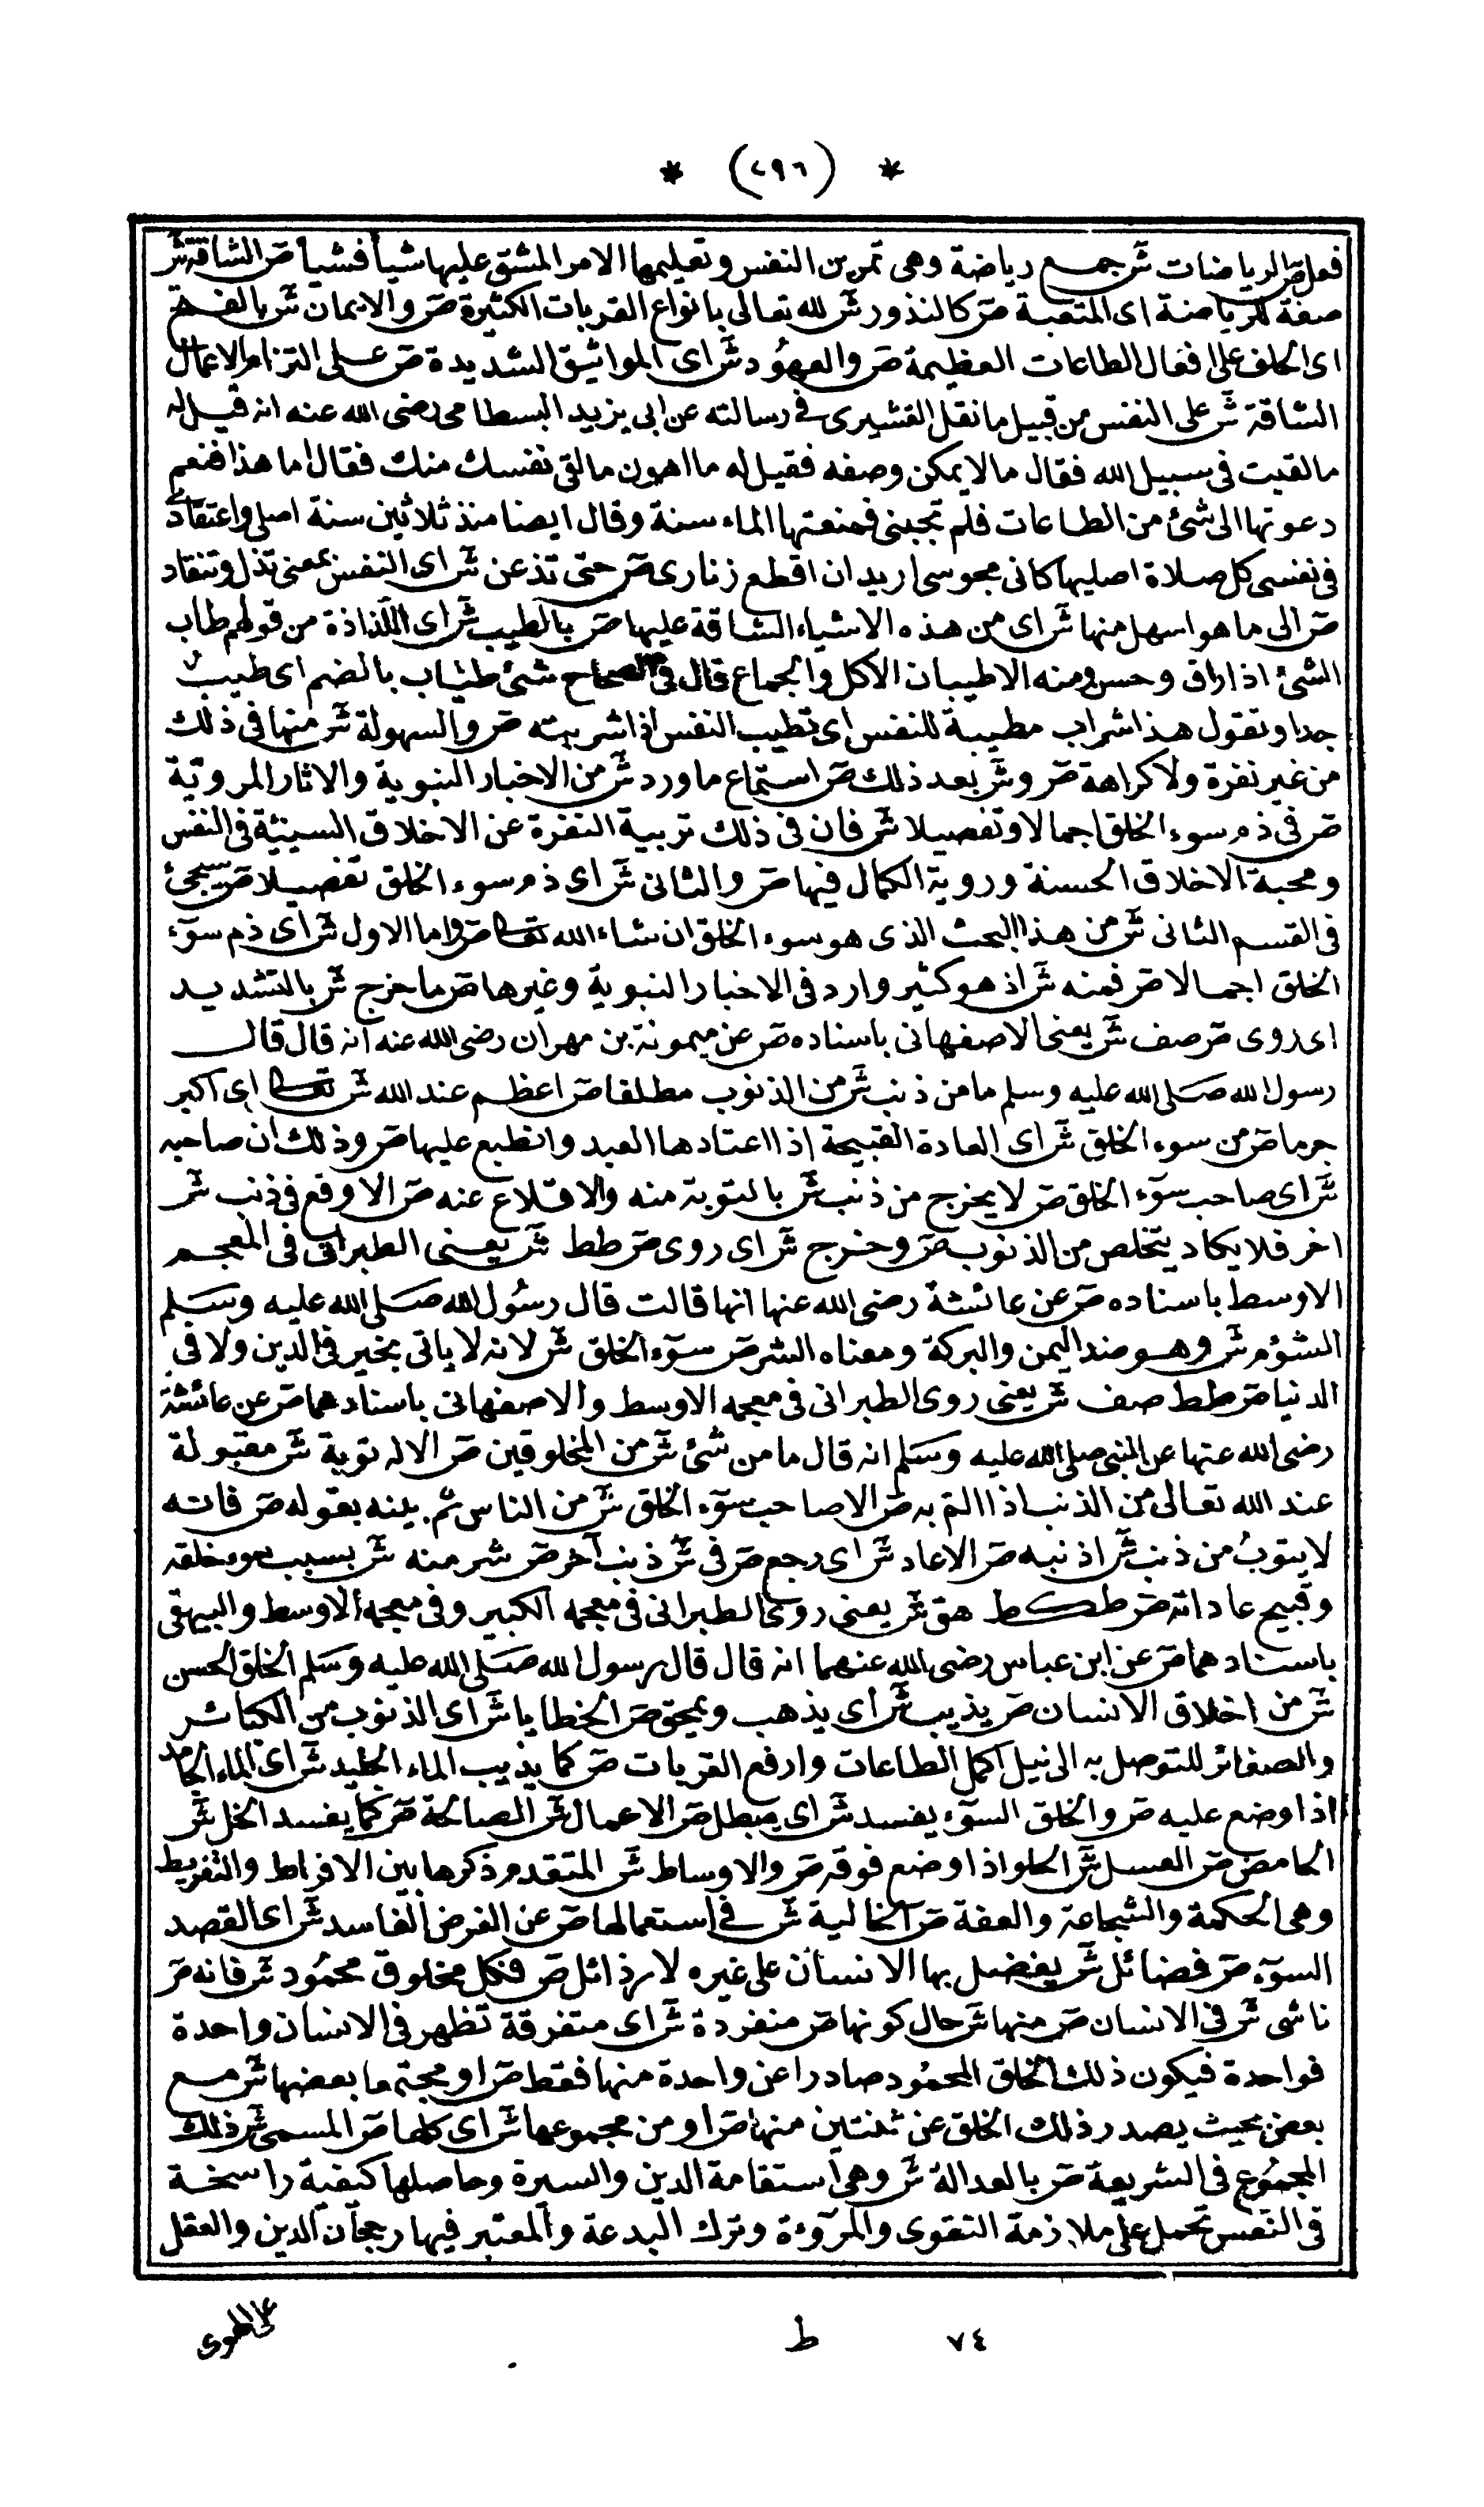 * (٢٩٦) *
فعل صر الرياضات شر جمع رياضة وهى تمرين النفس وتعليمها الامر المشق عليها شيأ فشيأ صر الشاقة شر
صفة للرياضة اى المتعبة صر كالنذور شر لله تعالى بانواع القربات الكثيرة صر والايمان شر بالفتح
اى الحلف على افعال الطاعات العظيمة صر والعهود شر اى المواثيق الشديدة صر على التزام الاعمال
الشاقة شر على النفس من قبيل ما نقل القشيرى فى رسالته عن ابى يزيد البسطامى رضى الله عنه انه قيل له
ما لقيت فى سبيل الله فقال ما لا يمكن وصفه فقيل له ما اهون ما لقى نفسك منك فقال اما هذا فنعم
دعوتها الى شئ من الطاعات فلم تجبنى فمنعتها الماء سنة وقال ايضا منذ ثلاثين سنة اصلى واعتقادى
فى نفسى كل صلاة اصليها كانى مجوسى اريد ان اقطع زنارى صر حتى تذعن شر اى النفس بمعنى تذل وتنقاد
صر الى ما هو اسهل منها شر اى من هذه الاشياء الشاقة عليها صر بالطيب شر اى اللذاذة من قولهم طاب
الشئ اذا راق وحسن ومنه الاطيبان الاكل والجماع قال فى الصحاح شئ طياب بالضم اى طيب
جدا وتقول هذا شراب مطيبة للنفس اى تطيب النفس اذا شربته صر والسهولة شر منها فى ذلك
من غير نفرة ولا كراهة صر و شر بعد ذلك صر استماع ما ورد شر من الاخبار النبوية والاثار المروية
صر فى ذم سوء الخلق اجمالا وتفصيلا شر فان فى ذلك تربية النفرة عن الاخلاق السيئة فى النفس
ومحبة الاخلاق الحسنة وروية الكمال فيها صر والثانى شر اى ذم سوء الخلق تفصيلا صر سيجئ
فى القسم الثانى شر من هذا البحث الذى هو سوء الخلق ان شاء الله تعالى صر واما الاول شر اى ذم سوء
الخلق اجمالا صر فمنه شر اذ هو كثير وارد فى الاخبار النبوية وغيرها صر ما خرج شر بالتشديد
اى روى صر صف شر يعنى الاصفهانى باسناده صر عن ميمونة بن مهران رضى الله عنه انه قال قال
رسول الله صلى الله عليه وسلم ما من ذنب شر من الذنوب مطلقا صر اعظم عند الله شر تعالى اى اكبر
جرما صر من سوء الخلق شر اى العادة القبيحة اذا اعتادها العبد وانطبع عليها صر وذلك ان صاحبه
شر اى صاحب سوء الخلق صر لا يخرج من ذنب شر بالتوبة منه والاقلاع عنه صر الا وقع فى ذنب شر
اخر فلا يكاد يتخلص من الذنوب صر وخرج شر اى روى صر طط شر يعنى الطبرانى فى المعجم
الاوسط باسناده صر عن عائشة رضى الله عنها انها قالت قال رسول الله صلى الله عليه وسلم
الشؤم شر وهو ضد اليمن والبركة ومعناه الشر صر سوء الخلق شر لانه لا ياتى بخير فى الدين ولا فى
الدنيا صر طط صف شر يعنى روى الطبرانى فى معجمه الاوسط والاصفهانى باسنادهما صر عن عائشة
رضى الله عنها عن النبى صلى الله عليه وسلم انه قال ما من شئ شر من المخلوقين صر الا له توبة شر مقبولة
عند الله تعالى من الذنب اذا الم به صر الا صاحب سوء الخلق شر من الناس ثم بينه بقوله صر فانه
لا يتوب من ذنب شر اذنبه صر الا عاد شر اى رجع صر فى شر ذنب آخر صر شر منه شر بسبب سوء خلقه
وقبيح عاداته صر طك طط هق شر يعنى روى الطبرانى فى معجمه الكبير وفى معجمه الاوسط والبيهقى
باسنادهما صر عن ابن عباس رضى الله عنهما انه قال قال رسول الله صلى الله عليه وسلم الخلق الحسن
شر من اخلاق الانسان صر يذيب شر اى يذهب ويمحق صر الخطايا شر اى الذنوب من الكبائر
والصغائر للتوصل به الى نيل اكمل الطاعات وارفع القربات صر كما يذيب الماء الجليد شر اى الماء الجامد
اذا وضع عليه صر والخلق السوء يفسد شر اى يبطل صر الاعمال شر الصالحة صر كما يفسد الخل شر
الحامض صر العسل شر الحلو اذا وضع فوقه صر والاوساط شر المتقدم ذكرها بين الافراط والتفريط
وهى الحكمة والشجاعة والعفة صر الخالية شر فى استعمالها صر عن الغرض الفاسد شر اى القصد
السوء صر فضائل شر يفضل بها الانسان على غيره لا رذائل صر فكل مخلوق محمود شر فانه صر
ناشى شر فى الانسان صر منها شر حال كونها صر منفردة شر اى متفرقة تظهر فى الانسان واحدة
فواحدة فيكون ذلك الخلق المحمود صادرا عن واحدة منها فقط صر او مجتمعا بعضها شر مع
بعض بحيث يصدر ذلك الخلق عن ثنتين منها صر او من مجموعها شر اى كلها صر المسمى شر ذلك
المجموع فى الشريعة صر بالعدالة شر وهى استقامة الدين والسيرة وحاصلها كيفية راسخة
فى النفس تحمل على ملازمة التقوى والمروءة وترك البدعة والمعتبر فيها رجحان الدين والعقل
٧٤ ط على الهوى